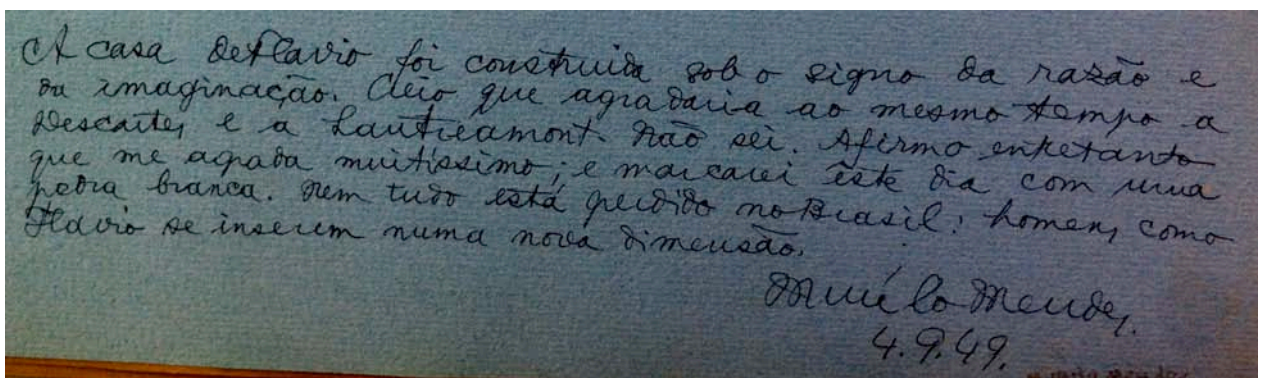 A casa de Flavio foi construida sob o signo da razão e
da imaginação. Creio que agradaria ao mesmo tempo a
Descartes e a Lautréamont. Não sei. Afirmo entretanto
que me agrada muitíssimo; e marcarei êste dia com uma
pedra branca. Nem tudo está perdido no Brasil: homens como
Flavio se inserem numa nova dimensão.
Murilo Mendes.
4.9.49.